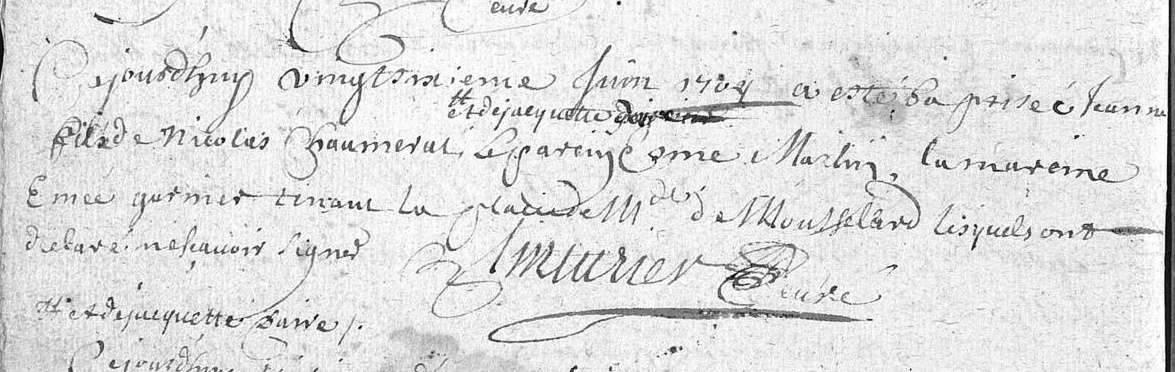 curé
Cejourdhuy vingtsixieme Juin 1704 a esté baptiseé Jeanne
# et dejacquette
fille de Nicolas Chaumerat, le parein Esme Martin, la mareine
Emeé garnier tenant la place de Mde de Mousselard lesquels ont
declaré ne scavoir signer
Murier curé
# et dejacquette barre /.
Cejourdhuy